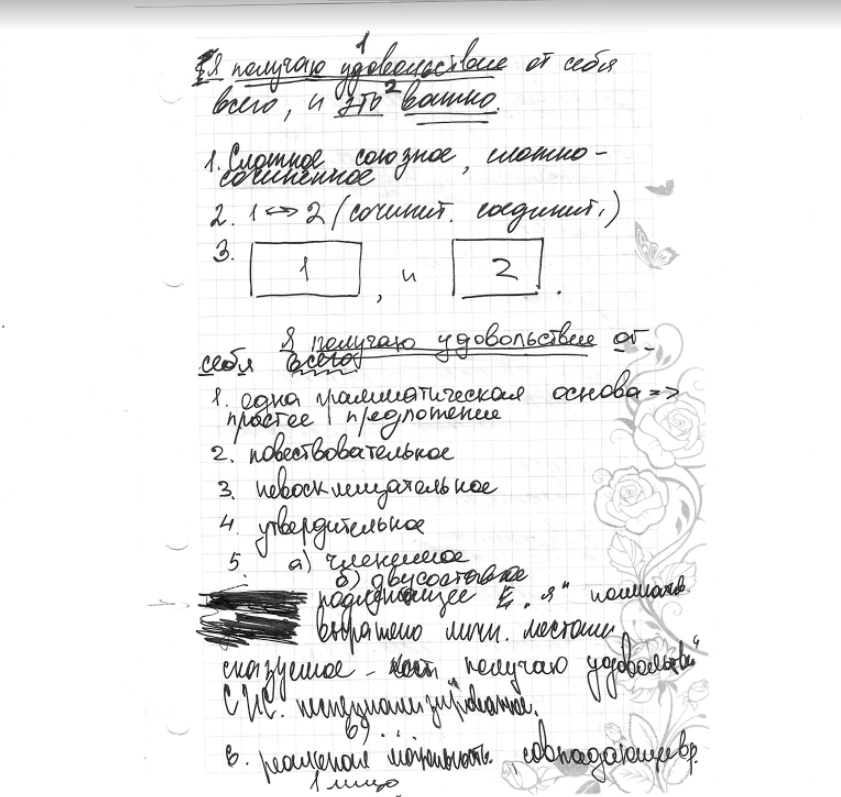 Я получаю удовольствие от себя
1
всего, и это важно.
2
1. Сложное союзное, сложно-
сочиненное
2. 1 ↔ 2 (сочинит. соединит.)
3. 1 , и 2 .
Я получаю удовольствие от
себя всего
1. одна грамматическая основа =>
простое предложение
2. повествовательное
3. невосклицательное
4. утвердительное
5 а) членимое
б) двусоставное
подлежащее "я"
выражено личн. местоим
сказуемое - получаю удовольстви"
в) ...
6. реальная модальность. совпадающее вр.
1 лицо